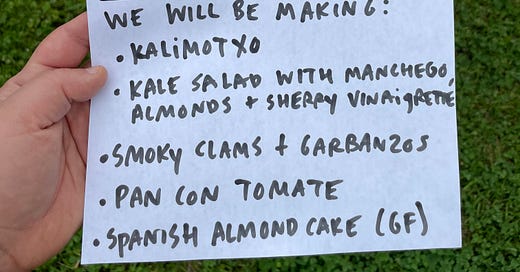 WE WILL BE MAKING:
• KALIMOTXO
• KALE SALAD WITH MANCHEGO,
ALMONDS + SHERRY VINAIGRETTE
• SMOKY CLAMS + GARBANZOS
• PAN CON TOMATE
• SPANISH ALMOND CAKE (GF)